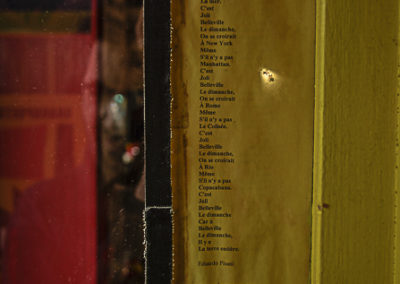 La mer,
C'est
Joli
Belleville
Le dimanche,
On se croirait
À New York
Même
S'il n'y a pas
Manhattan.
C'est
Joli
Belleville
Le dimanche,
On se croirait
À Rome
Même
S'il n'y a pas
Le Colisée.
C'est
Joli
Belleville
Le dimanche,
On se croirait
À Rio
Même
S'il n'y a pas
Copacabana.
C'est
Joli
Belleville
Le dimanche
Car à
Belleville
Le dimanche,
Il y a
La terre entière.
Eduardo Pisani